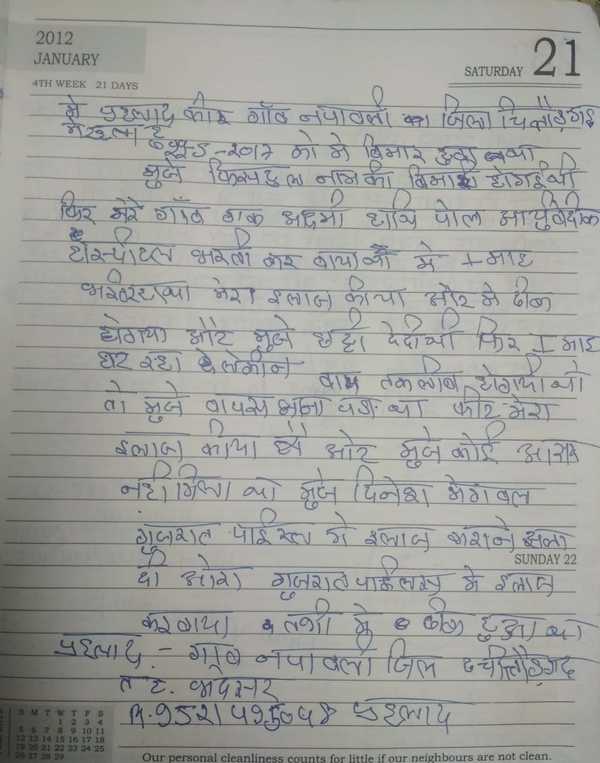 2012
JANUARY
4TH WEEK 21 DAYS
SATURDAY 21
मे प्रहलाद कीर गाँव नपावली का जिला चितौड़गढ़
मे रहता हूँ 2017 को मे बिमार हुआ था
मुजे नाम की बिमारी होगई थी
फिर मेरे गाँव का एक आदमी पोल आयुर्वेदीक
होस्पीटल भरती कर वाया मे 1 माह
भरती रहा था मेरा इलाज कीया और मे ठीक
होगया और मुजे छुटी देदी थी फिर 1 माह
घर रहा लेकीन वापस तकलीब होगयी थी
तो मुजे वापस आना पड़ा था फीर मेरा
इलाज कीया और मुजे कोई आराम
नही मिला था मुजे दिनेश मेगवाल
गुजरात पाईल्स मे इलाज कराने सला
SUNDAY 22
दी और गुजरात पाईल्स मे इलाज
करवाया तभी मे ठीक हुआ था
प्रहलाद - गाव नपावली जिला चीतौड़गढ
त ह. भदेसर
प्रहलाद
S M T W T F S
1 2 3 4
5 6 7 8 9 10 11
12 13 14 15 16 17 18
19 20 21 22 23 24 25
26 27 28 29
Our personal cleanliness counts for little if our neighbours are not clean.